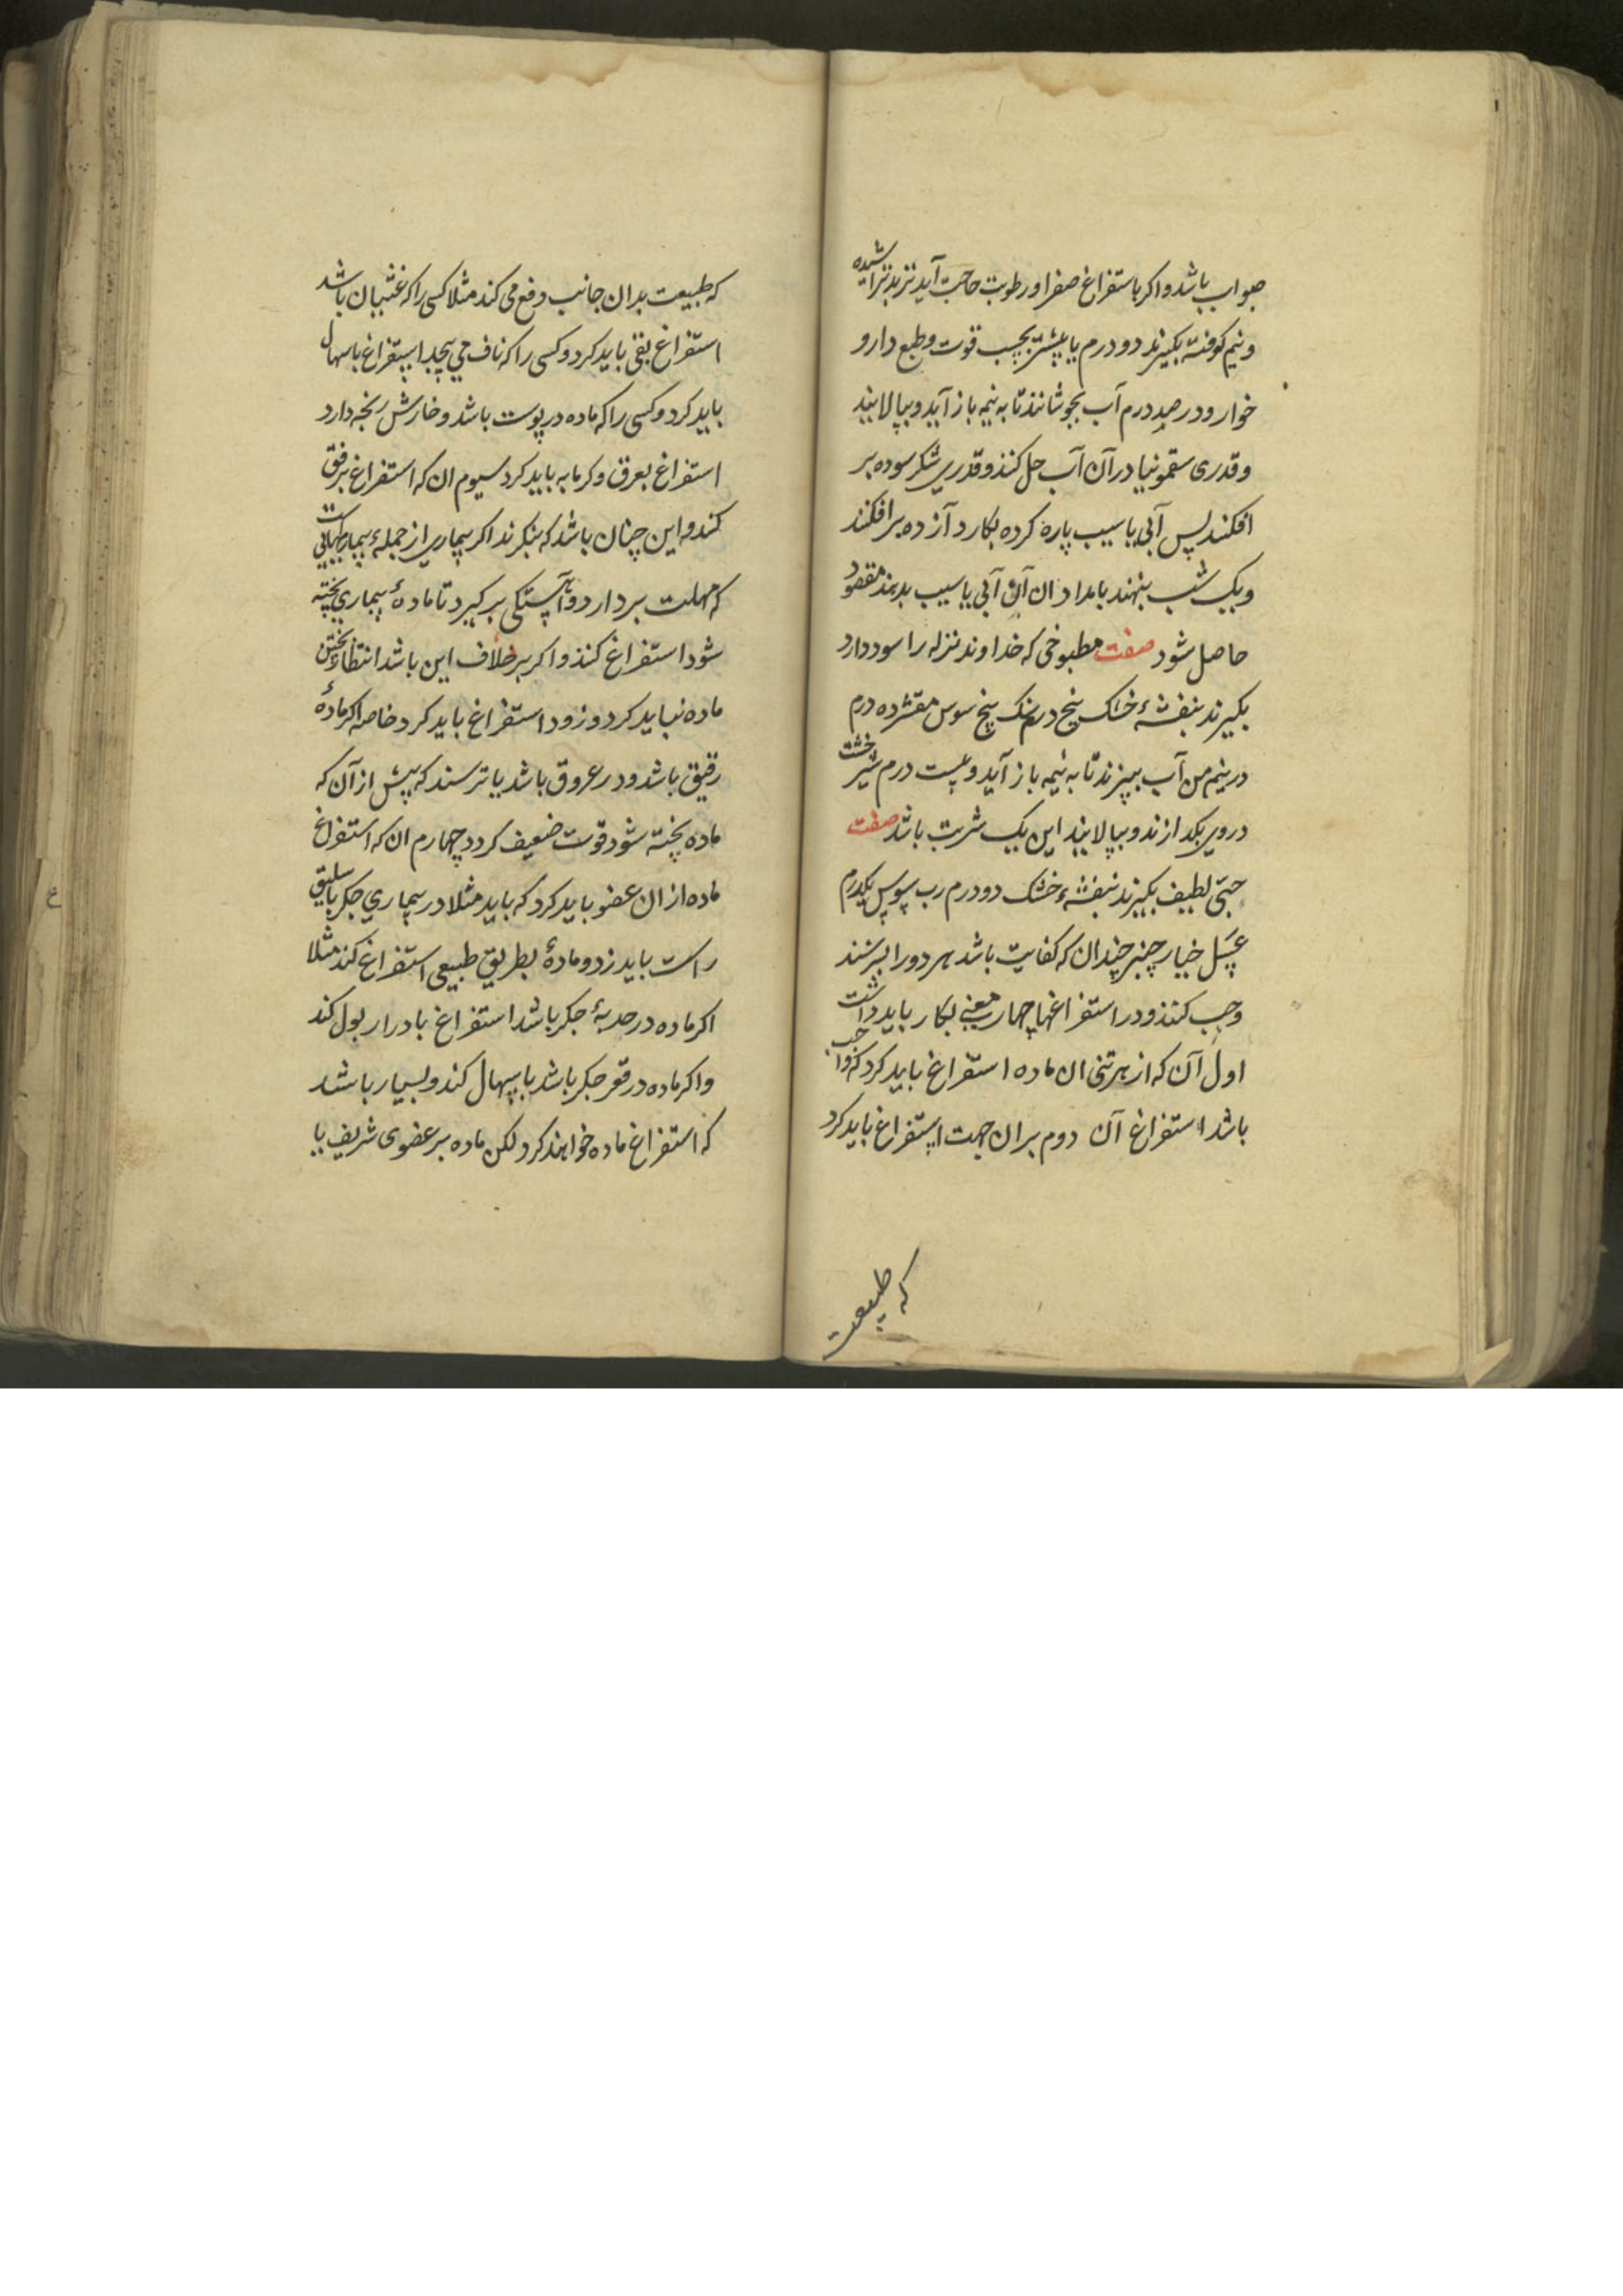 صواب باشد واکر باستفراغ صفرا و رطوبت حاجت آید تربد تراشیده
و نیم کوفته بکیرند دو درم یا بیشتر بحسب قوت و طبع دارو
خوار و در صد درم آب بجوشانند تا به نیمه باز آید و بپالایند
و قدری سقمونیا در آن آب حل کنند و قدری شکر سوده بر
افکنند پس آبی یا سیب پاره کرده بکارد آژده بر افکنند
و یک شب بنهند بامدادان آن آبی یا سیب بدهند مقصود
حاصل شود صفت مطبوخی که خداوند نزله را سود دارد
بکیرند بنفشهٔ خشک پنج درمسنک بیخ سوس مقشر ده درم
در نیم من آب بپزند تا به نیمه باز آید و بیست درم شیرخشت
در وی بکدازند و بپالایند این یک شربت باشد صفت
حبّی لطیف بکیرند بنفشهٔ خشک دو درم رب سوس یکدرم
عسل خیار چنبر چندان که کفایت باشد هر دو را بسرشند
و حب کنند و در استفراغها چهار معنی بکار باید داشت
اول آن که از هر تنی ان ماده استفراغ باید کرد که واجب
باشد استفراغ آن دوم بران جهت استفراغ باید کرد
که طبیعت
که طبیعت بدان جانب دفع می کند مثلا کسی را که غثیان باشد
استفراغ بقی باید کرد و کسی را که ناف می پیچد استفراغ باسهال
باید کرد و کسی را که ماده در پوست باشد و خارش رنجه دارد
استفراغ بعرق و کرمابه باید کرد سیوم ان که استفراغ برفق
کند و این چنان باشد که بنکرند اکر بیماری از جملهٔ بیماریهائی است
که مهلت بر دارد و آهستکی بر کیرد تا مادهٔ بیماری پخته
شود استفراغ کنند و اکر بر خلاف این باشد انتظار پختن
ماده نباید کرد و زود استفراغ باید کرد خاصه اکر مادهٔ
رقیق باشد و در عروق باشد یا ترسند که پیش از آن که
ماده پخته شود قوت ضعیف کردد چهارم ان که استفراغ
ماده از ان عضو باید کرد که باید مثلا در بیماری جکر باسلیق
راست باید زد و مادهٔ بطریق طبیعی استفراغ کند مثلا
اکر ماده در حدبهٔ جکر باشد استفراغ بادرار بول کند
و اکر ماده در قعر جکر باشد باسهال کند و بسیار باشد
که استفراغ ماده خواهند کرد لکن ماده بر عضوی شریف یا